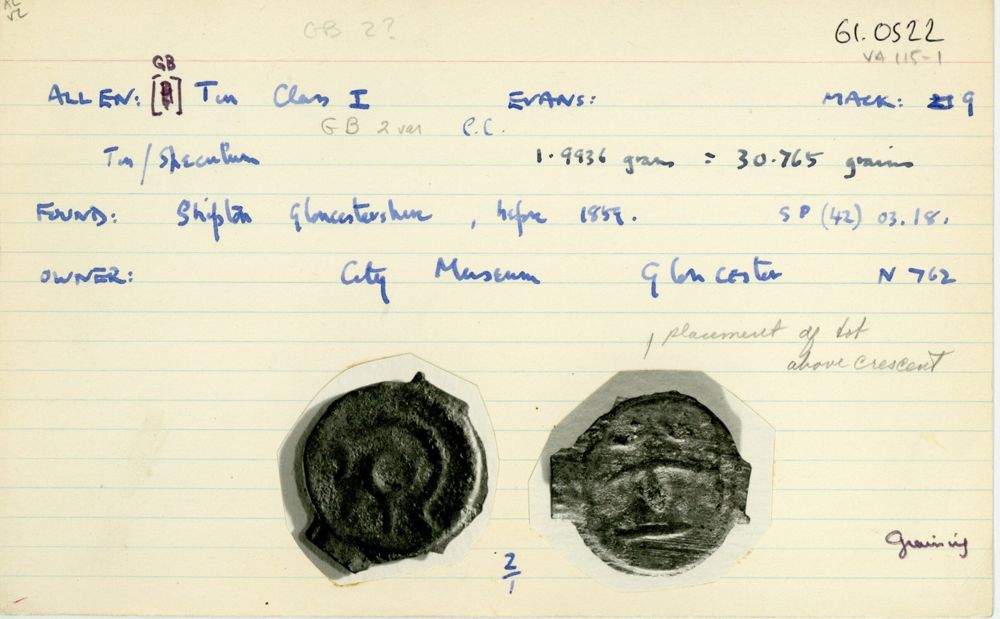 GB 2?
61.0522
VA 115-1
GB
ALLEN: Tin Class I EVANS: MACK: 9
GB 2 var C.C.
Tin/Speculum 1.9936 grams = 30.765 grains
FOUND: Shipton Gloucestershire, before 1859. SP (42) 03.18.
OWNER: City Museum Gloucester N 762
placement of dot
above crescent
2/1
Graining